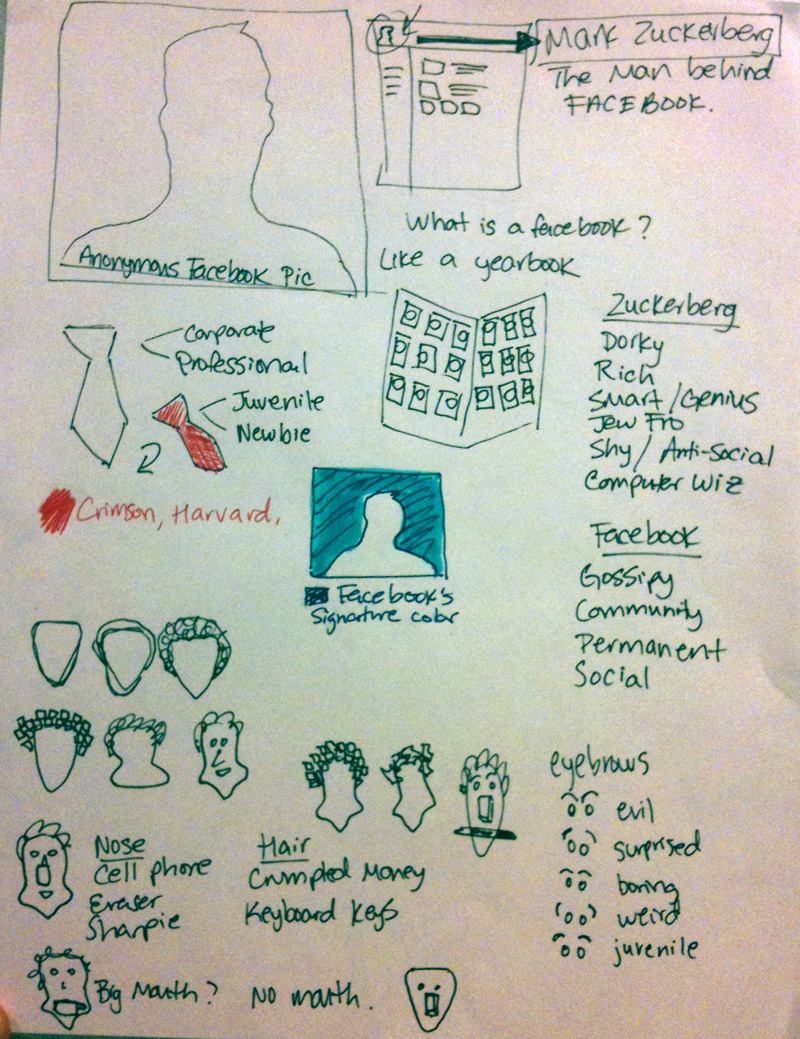 Mark Zuckerberg
The Man behind
FACEBOOK.
Anonymous Facebook Pic
What is a facebook?
Like a yearbook
Corporate
Professional
Juvenile
Newbie
Crimson, Harvard,
Zuckerberg
Dorky
Rich
Smart/Genius
Jew Fro
Shy/Anti-Social
Computer Wiz
Facebook's
Signature color
Facebook
Gossipy
Community
Permanent
Social
Nose
Cell phone
Eraser
Sharpie
Hair
Crumpled Money
Keyboard Keys
eyebrows
evil
surprised
boring
weird
juvenile
Big Mouth?
No mouth.